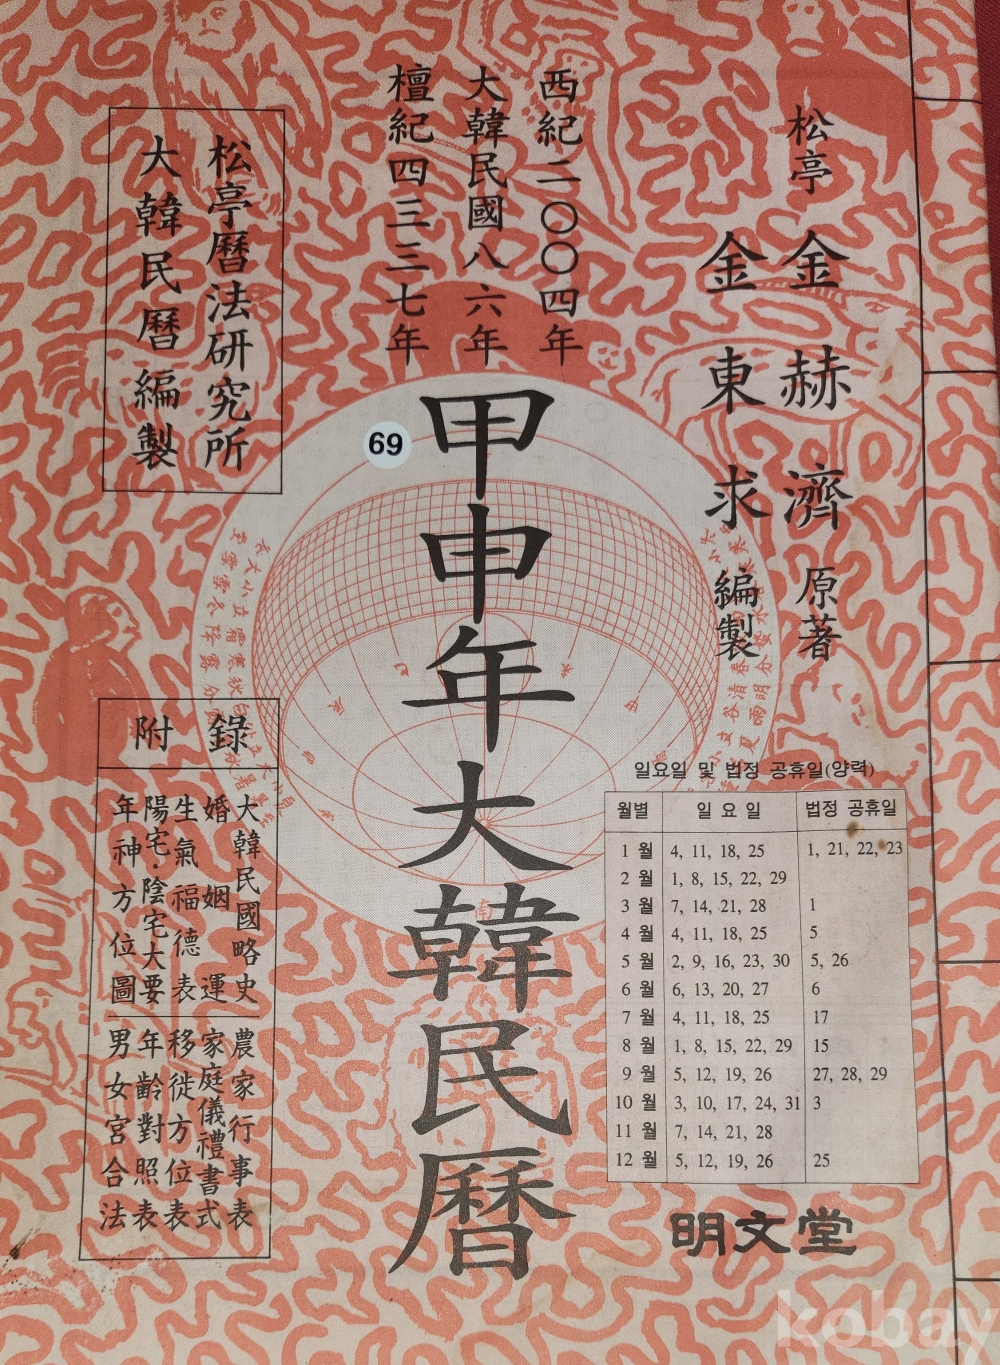 松亭 金赫濟 原著
金東求 編製
西紀二〇〇四年
大韓民國八六年
檀紀四三三七年
松亭曆法研究所
大韓民曆編製
69
甲申年大韓民曆
附錄
大韓民國略史
婚姻運
生氣福德表
陽宅·陰宅大要
年神方位圖
農家行事表
家庭儀禮書式
移徙方位表
年齡對照表
男女宮合法
일요일 및 법정 공휴일(양력)
월별 일요일 법정 공휴일
1 월 4, 11, 18, 25 1, 21, 22, 23
2 월 1, 8, 15, 22, 29
3 월 7, 14, 21, 28 1
4 월 4, 11, 18, 25 5
5 월 2, 9, 16, 23, 30 5, 26
6 월 6, 13, 20, 27 6
7 월 4, 11, 18, 25 17
8 월 1, 8, 15, 22, 29 15
9 월 5, 12, 19, 26 27, 28, 29
10 월 3, 10, 17, 24, 31 3
11 월 7, 14, 21, 28
12 월 5, 12, 19, 26 25
明文堂
南
kobay